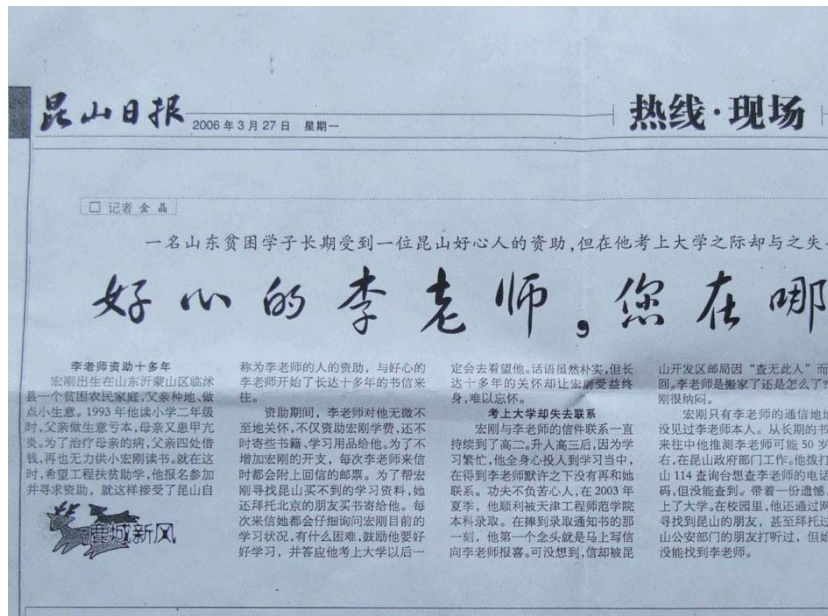 昆山日报
2006年3月27日 星期一
热线·现场
□ 记者 金晶
一名山东贫困学子长期受到一位昆山好心人的资助,但在他考上大学之际却与之失
好心的李老师,您在哪
李老师资助十多年
宏刚出生在山东沂蒙山区临沭
县一个贫困农民家庭,父亲种地、做
点小生意。1993年他读小学二年级
时,父亲做生意亏本,母亲又患甲亢
炎。为了治疗母亲的病,父亲四处借
钱,再也无力供小宏刚读书。就在这
时,希望工程扶贫助学,他报名参加
并寻求资助,就这样接受了昆山自
鹿城新风
称为李老师的人的资助,与好心的
李老师开始了长达十多年的书信来
往。
资助期间,李老师对他无微不
至地关怀,不仅资助宏刚学费,还不
时寄些书籍、学习用品给他。为了不
增加宏刚的开支,每次李老师来信
时都会附上回信的邮票。为了帮宏
刚寻找昆山买不到的学习资料,她
还拜托北京的朋友买书寄给他。每
次来信她都会仔细询问宏刚目前的
学习状况,有什么困难,鼓励他要好
好学习,并答应他考上大学以后一
定会去看望他。话语虽然朴实,但长
达十多年的关怀却让宏刚受益终
身,难以忘怀。
考上大学却失去联系
宏刚与李老师的信件联系一直
持续到了高二。升入高三后,因为学
习繁忙,他全身心投入到学习当中,
在得到李老师默许之下没有再和她
联系。功夫不负苦心人,在2003年
夏季,他顺利被天津工程师范学院
本科录取。在捧到录取通知书的那
一刻,他第一个念头就是马上写信
向李老师报喜。可没想到,信却被昆
山开发区邮局因“查无此人”而
回。李老师是搬家了还是怎么了
刚很纳闷。
宏刚只有李老师的通信地
没见过李老师本人。从长期的书
来往中他推测李老师可能50岁
右,在昆山政府部门工作。他拨打
山114查询台想查李老师的电话
码,但没能查到。带着一份遗憾
上了大学。在校园里,他还通过网
寻找到昆山的朋友,甚至拜托过
山公安部门的朋友打听过,但
没能找到李老师。